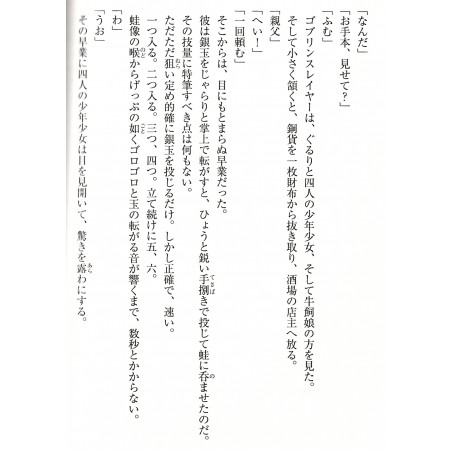 「なんだ」
「お手本、見せて？」
「ふむ」
ゴブリンスレイヤーは、ぐるりと四人の少年少女、そして牛飼娘の方を見た。
そして小さく頷くと、銅貨を一枚財布から抜き取り、酒場の店主へ放る。
「親父」
「へい！」
「一回頼む」
そこからは、目にもとまらぬ早業だった。
彼は銀玉をじゃらりと掌上で転がすと、ひょうと鋭い手捌きで投じて蛙に呑ませたのだ。
その技量に特筆すべき点は何もない。
ただただ狙い定め的確に銀玉を投じるだけ。しかし正確で、速い。
一つ入る。二つ入る。三つ、四つ。立て続けに五、六。
蛙像の喉からげっぷの如くゴロゴロと玉の転がる音が響くまで、数秒とかからない。
「わ」
「うお」
その早業に四人の少年少女は目を見開いて、驚きを露わにする。